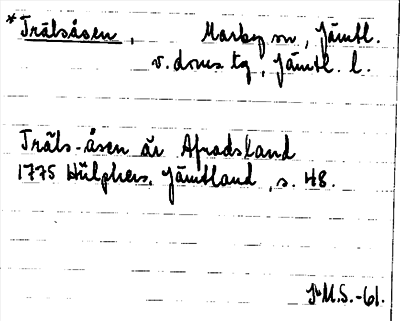 *Trälsåsen, Marby sn, Jämtl.
v. doms tg, Jämtl. l.
Träls-åsen är Afradsland
1775 Hülphers, Jämtland, s. 48.
M.S.-61.